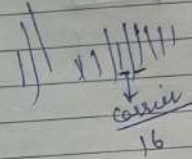 carrier
16